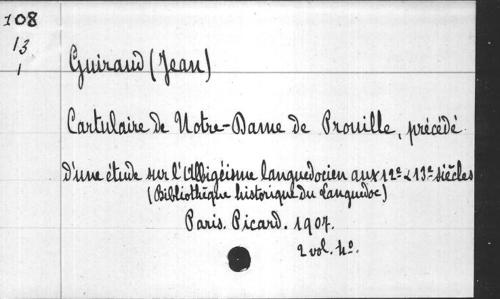 108
13
1
Guiraud (Jean)
Cartulaire de Notre-Dame de Prouille, précédé
d'une étude sur l'Albigéisme languedocien aux 12e & 13e siècles
(Bibliothèque historique du Languedoc)
Paris. Picard. 1907.
2 vol. 4o.